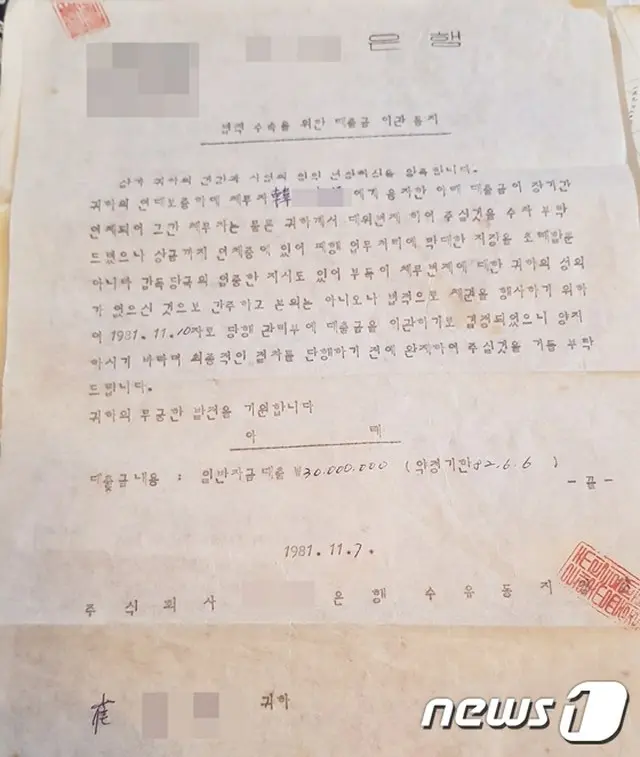 은 행
법적 수속을 위한 대출금 이관 통지
귀하의 연대보증하에 채무자 韓 에게 융자한 아래 대출금이 장기간
연체되어 그간 채무자는 물론 귀하께서 대위변제 하여 주실것을 수차 부탁
드렸으나 상금까지 연체중에 있어 폐행 업무처리에 막대한 지장을 초래함은
아니라 감독당국의 엄중한 지시도 있어 부득이 채무변제에 대한 귀하의 성의
가 없으신 것으로 간주하고 본의는 아니오나 법적으로 채권을 행사하기 위하
여 1981. 11. 10자로 당행 관리부에 대출금을 이관하기로 결정되었으니 양지
하시기 바라며 최종적인 절차를 단행하기 전에 완제하여 주실것을 거듭 부탁
드립니다.
귀하의 무궁한 발전을 기원합니다
아 래
대출금내용 : 일반자금대출 ₩30,000,000 (약정기한 82. 6. 6 )
- 끝 -
1981. 11. 7.
주 식 회 사 은 행 수 유 동 지
귀하
news1